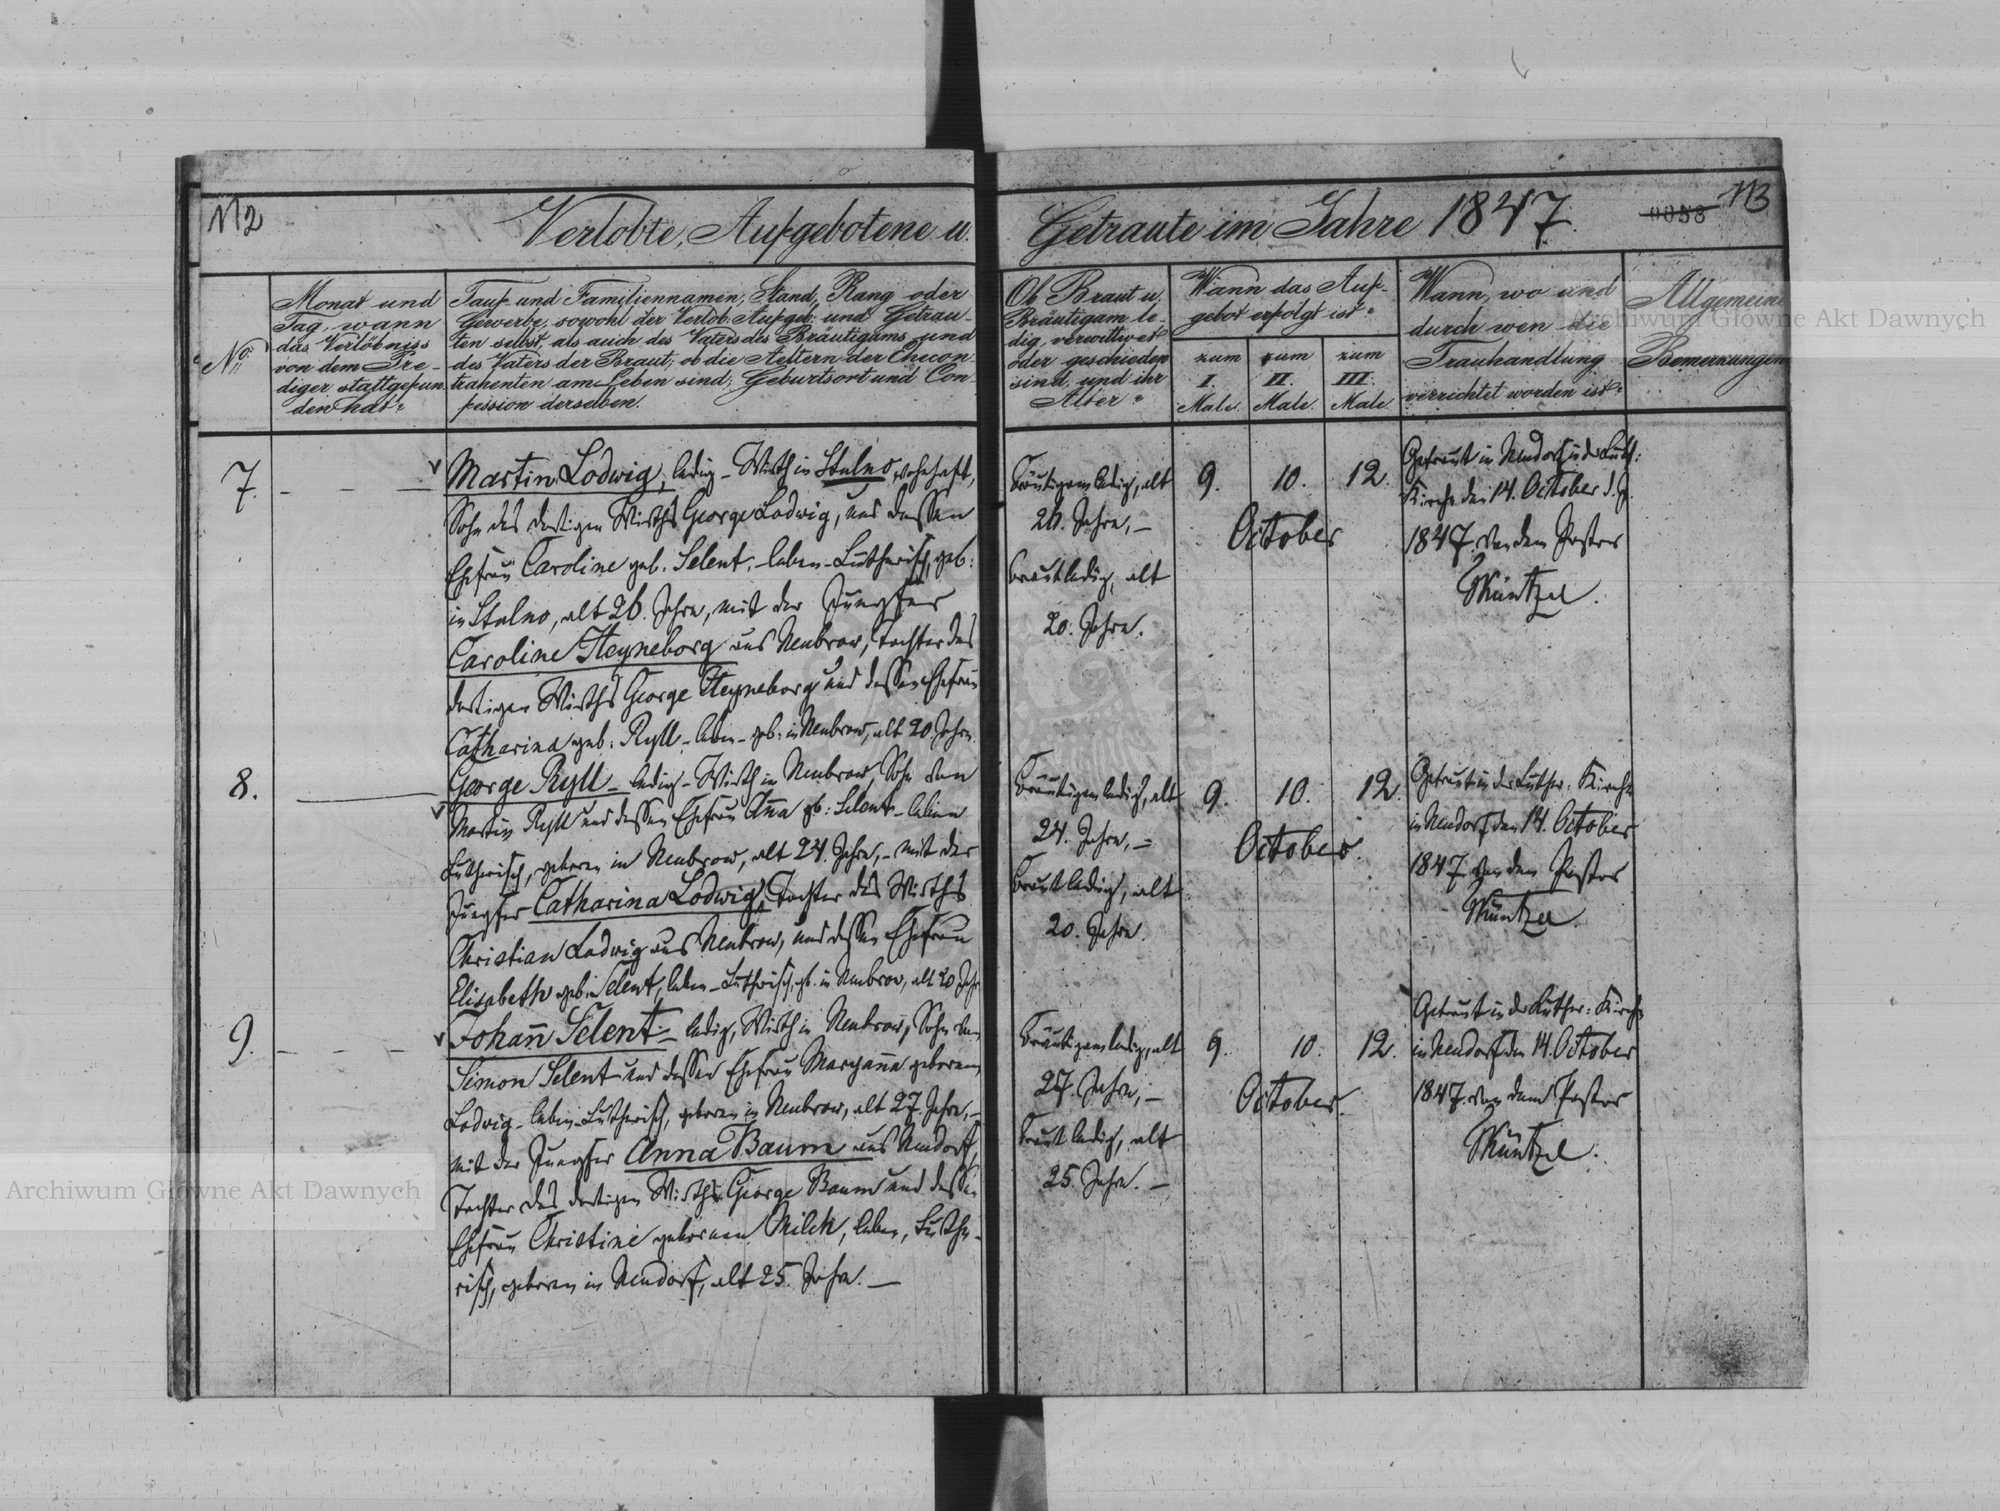 112
Verlobte, Aufgebotene u.
No:
Monat und
Tag, wann
das Verlöbniss
von dem Pre-
diger stattgefun
den hat?
Tauf- und Familiennamen, Stand, Rang oder
Gewerbe, sowohl der Verlob: Aufgeb: und Getrau-
ten selbst, als auch des Vaters des Bräutigams und
des Vaters der Braut; ob die Aeltern der Checon-
trahenten am Leben sind; Geburtsort und Con-
fession derselben.
7.
Martin Lodwig, ledig - Wirth in Stulno wohnhaft,
Sohn des dortigen Wirths George Lodwig, und dessen
Ehefrau Caroline geb. Selent. - leben - Lutherisch, geb:
in Stulno, alt 26. Jahre, mit der Jungfer
Caroline Heyneborg aus Neubrow, Tochter des
dortigen Wirths George Heyneborg und dessen Ehefrau
Catharina geb: Ryll - leben - geb: in Neubrow, alt 20 Jahre.
8.
George Ryll - ledig - Wirth in Neubrow, Sohn von
Martin Ryll und dessen Ehefrau Anna gb: Selent - leben
Lutherisch, geboren in Neubrow, alt 24. Jahre, - mit der
Jungfer Catharina Lodwig, Tochter des Wirths
Christian Lodwig aus Neubrow, und dessen Ehefrau
Elisabeth geb: Selent, leben - Lutherisch, gb. in Neubrow, alt 20 Jahr
9.
Johann Selent - ledig, Wirth in Neubrow, Sohn von
Simon Selent und dessen Ehefrau Maryanna geborenen
Lodwig - leben - Lutherisch, geboren in Neubrow, alt 27. Jahre, -
mit der Jungfer Anna Baum aus Neudorf,
Tochter des dortigen Wirths George Baum und dessen
Ehefrau Christine gebornen Milck, leben, Luthe-
risch, geboren in Neudorf, alt 25. Jahre. -
Getraute im Jahre 1847.
0058
113
Ob Braut u.
Bräutigam le-
dig, verwittwet
oder geschieden
sind, und ihr
Alter?
Wann das Auf-
gebot erfolgt ist?
zum
I.
Male.
zum
II.
Male.
zum
III.
Male.
Wann, wo und
durch wen die
Trauhandlung
verrichtet worden ist?
Allgemeine
Bemerkungen
Bräutigam ledig, alt
26. Jahre, -
Braut ledig, alt
20. Jahre.
9. 10. 12.
October
Getraut in Neudorf in der Luth:
Kirche den 14. October d. J.
1847. von dem Pastor
Müntzel.
Bräutigam ledig, alt
24. Jahre, -
Braut ledig, alt
20. Jahre.
9. 10. 12.
October.
Getraut in der Luther: Kirche
in Neudorf den 14. October
1847. von dem Pastor
Müntzel.
Bräutigam ledig, alt
27. Jahre, -
Braut ledig, alt
25. Jahre. -
9. 10. 12.
October.
Getraut in der Luther: Kirche
in Neudorf den 14. October
1847. von dem Pastor
Müntzel.
Archiwum Główne Akt Dawnych
Archiwum Główne Akt Dawnych